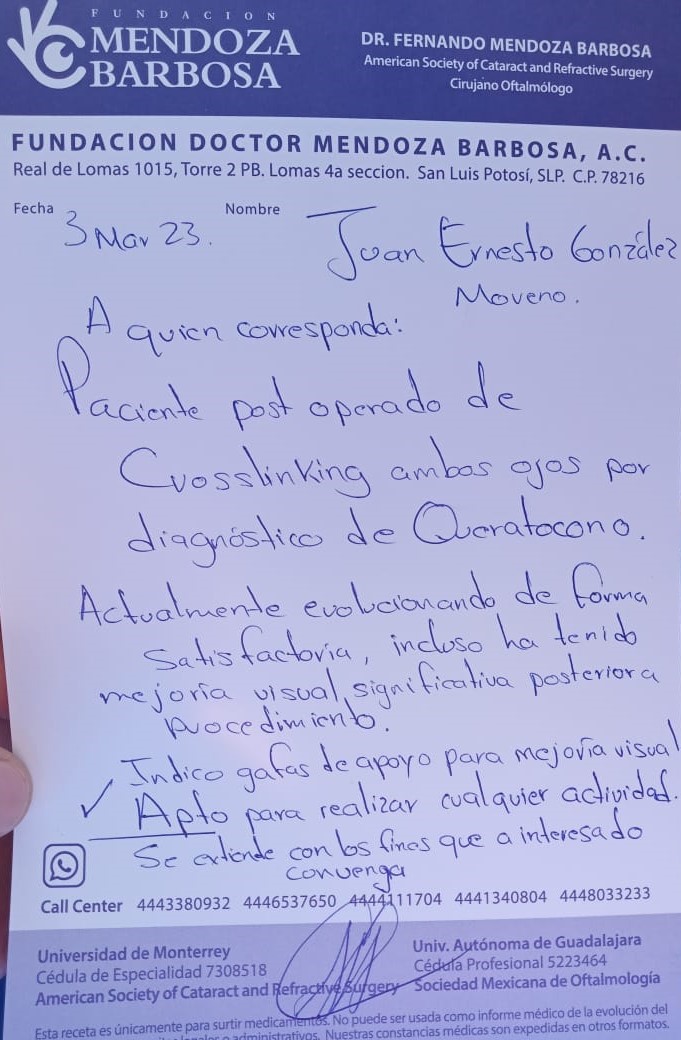 FUNDACION
MENDOZA
BARBOSA
DR. FERNANDO MENDOZA BARBOSA
American Society of Cataract and Refractive Surgery
Cirujano Oftalmólogo
FUNDACION DOCTOR MENDOZA BARBOSA, A.C.
Real de Lomas 1015, Torre 2 PB. Lomas 4a seccion. San Luis Potosí, SLP. C.P. 78216
Fecha 3 Mar 23. Nombre Juan Ernesto González
Moreno.
A quien corresponda:
Paciente post operado de
Crosslinking ambos ojos por
diagnóstico de Queratocono.
Actualmente evolucionando de forma
satisfactoria, incluso ha tenido
mejoría visual significativa posterior a
procedimiento.
Indico gafas de apoyo para mejoría visual
✓ Apto para realizar cualquier actividad.
Se extiende con los fines que a interesado
convenga
Call Center 4443380932 4446537650 4444111704 4441340804 4448033233
Universidad de Monterrey
Cédula de Especialidad 7308518
American Society of Cataract and Refractive Surgery
Univ. Autónoma de Guadalajara
Cédula Profesional 5223464
Sociedad Mexicana de Oftalmología
Esta receta es únicamente para surtir medicamentos. No puede ser usada como informe médico de la evolución del
o administrativos. Nuestras constancias médicas son expedidas en otros formatos.